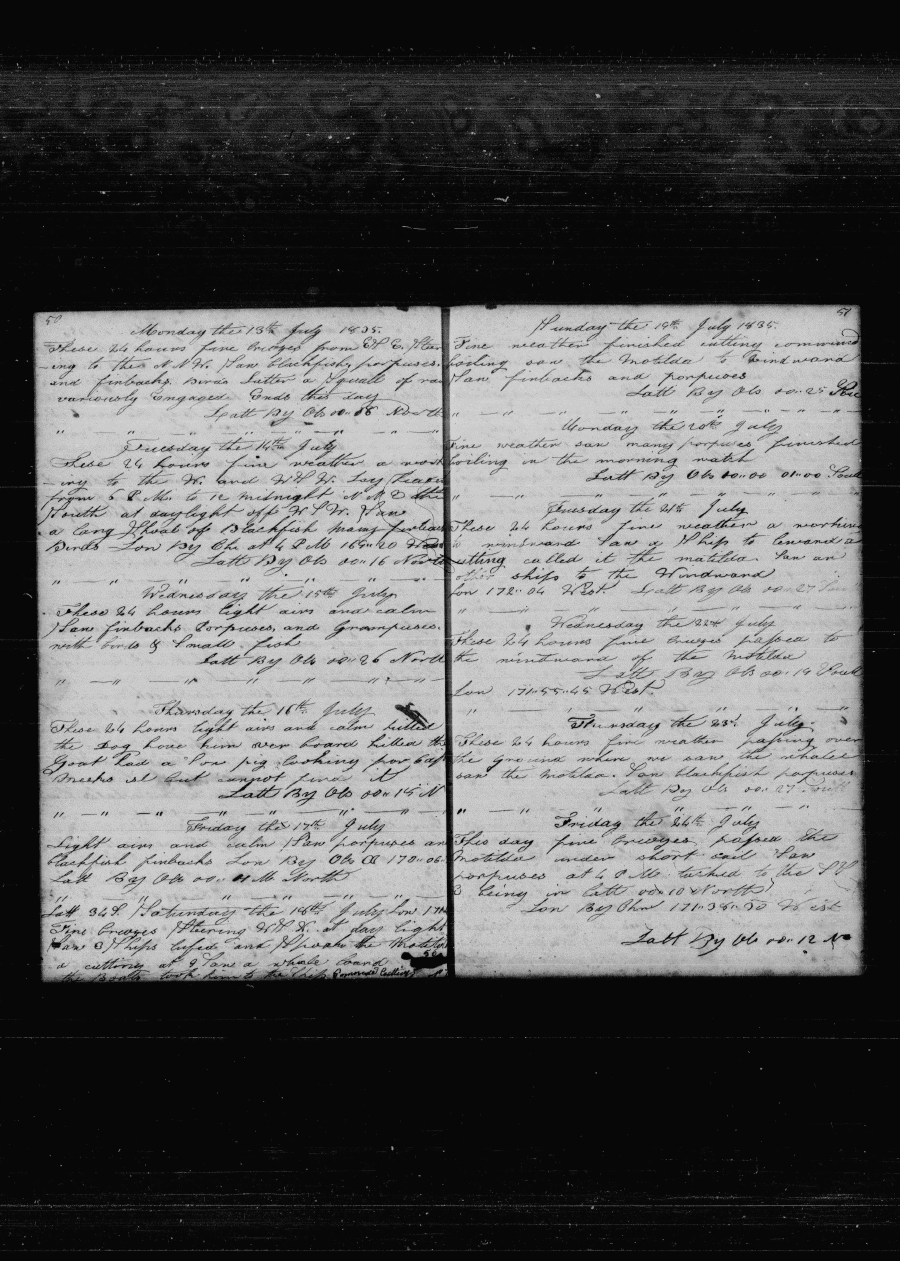 50
Monday the 13th July 1835.
These 24 hours fine breezes from E S E Steer
ing to the N N W. Saw blackfish, porpuses.
and finbacks. Birds Latter a Squall of rain
variously Engaged Ends this day
Latt By Ob 00..08 North
Tuesday the 14th July
These 24 hours fine weather a work
ing to the W. and Lay
from 6 P.M. to 12 midnight the
South at daylight off W S W. Saw
a larg Shoal of Blackfish many
Birds Lon By Chr at 4 P.M 169..20 West
Latt By Ob 00..16 North
Wednesday the 15th July
These 24 hours light airs and calm
Saw finbacks Porpuses, and Grampuses.
with birds & Small fish
Latt By Ob 00..26 North
Thursday the 16th July
These 24 hours light airs and calm killed
the Dog hove him over board killed the
Goat had a Sea pig looking for
but cannot find it
Latt By Ob 00..15 N
Friday the 17th July
Light airs and calm Saw porpuses an
blackfish finbacks Lon By Ob 170..06
Latt By Ob 00.. North
Latt Saturday the 18th July Lon 171
Fine breezes Steering at day light
Saw 3 Ships lufed and Spoak the Matilda
a cutting at 9 Saw a whale
the Boats took him to the Ship Comence Cutting
51
Sunday the 19th July 1835.
Fine weather finished cutting commenced
boiling saw the Matilda to windward
Saw finbacks and porpuses
Latt By Ob 00..25 Sou
Monday the 20th July
Fine weather saw many porpuses finished
boiling in the morning watch
Latt By Ob 00..00 01..00 South
Tuesday the 21th July
These 24 hours fine weather a working
to windward Saw a Ship to leward a
cutting called it the matilda. Saw an
other ships to the Windward
Lon 172..04 West. Latt By Ob 00..27 Sou
Wednesday the 22th July
These 24 hours fine breezes passed to
the windward of the Matilda
Latt By Ob 00..19 South
Lon 171..55..45 West
Thursday the 23d July.
These 24 hours fine weather passing over
the ground where we saw the whales
saw the Matilda. Saw blackfish porpuses
Latt By Ob 00..27 South
Friday the 24th July
This day fine breezes, passed the
Matilda under short sail Saw
porpuses at 4 P.M. tacked to the
being in latt 00..10 North
Lon By Chr 171..38..30 West
Latt By Ob 00..12 No